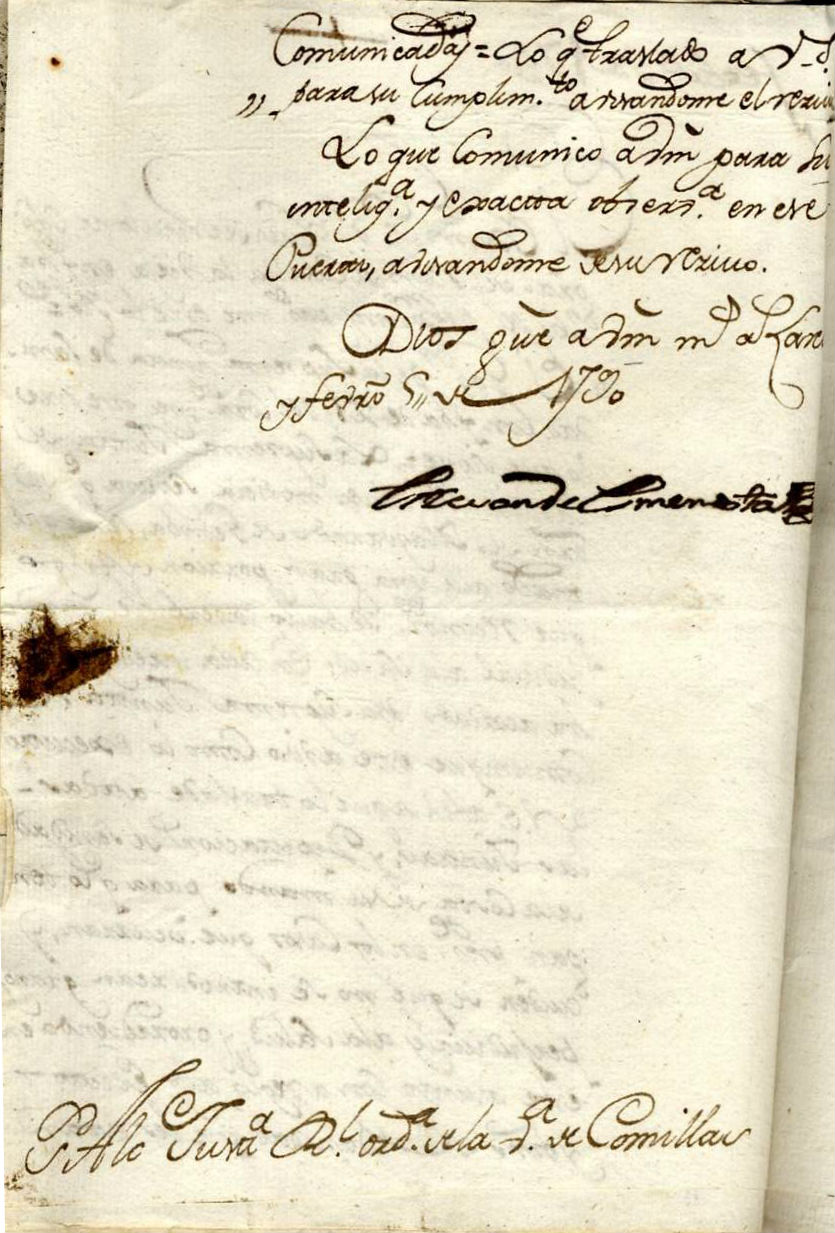 Comunicadas = Lo qe traslado a V.S.
„ para su Cumplim.to avisandome el reciv
Lo que Comunico a Vm para su
intelig.a y exacta observ.a en ese
Puerto, avisandome de su recivo.
Dios gue a Vm ms as Lare
y febro 5,, de 1790
P. Alc Justa Rl. ordª de la v.a de Comillas